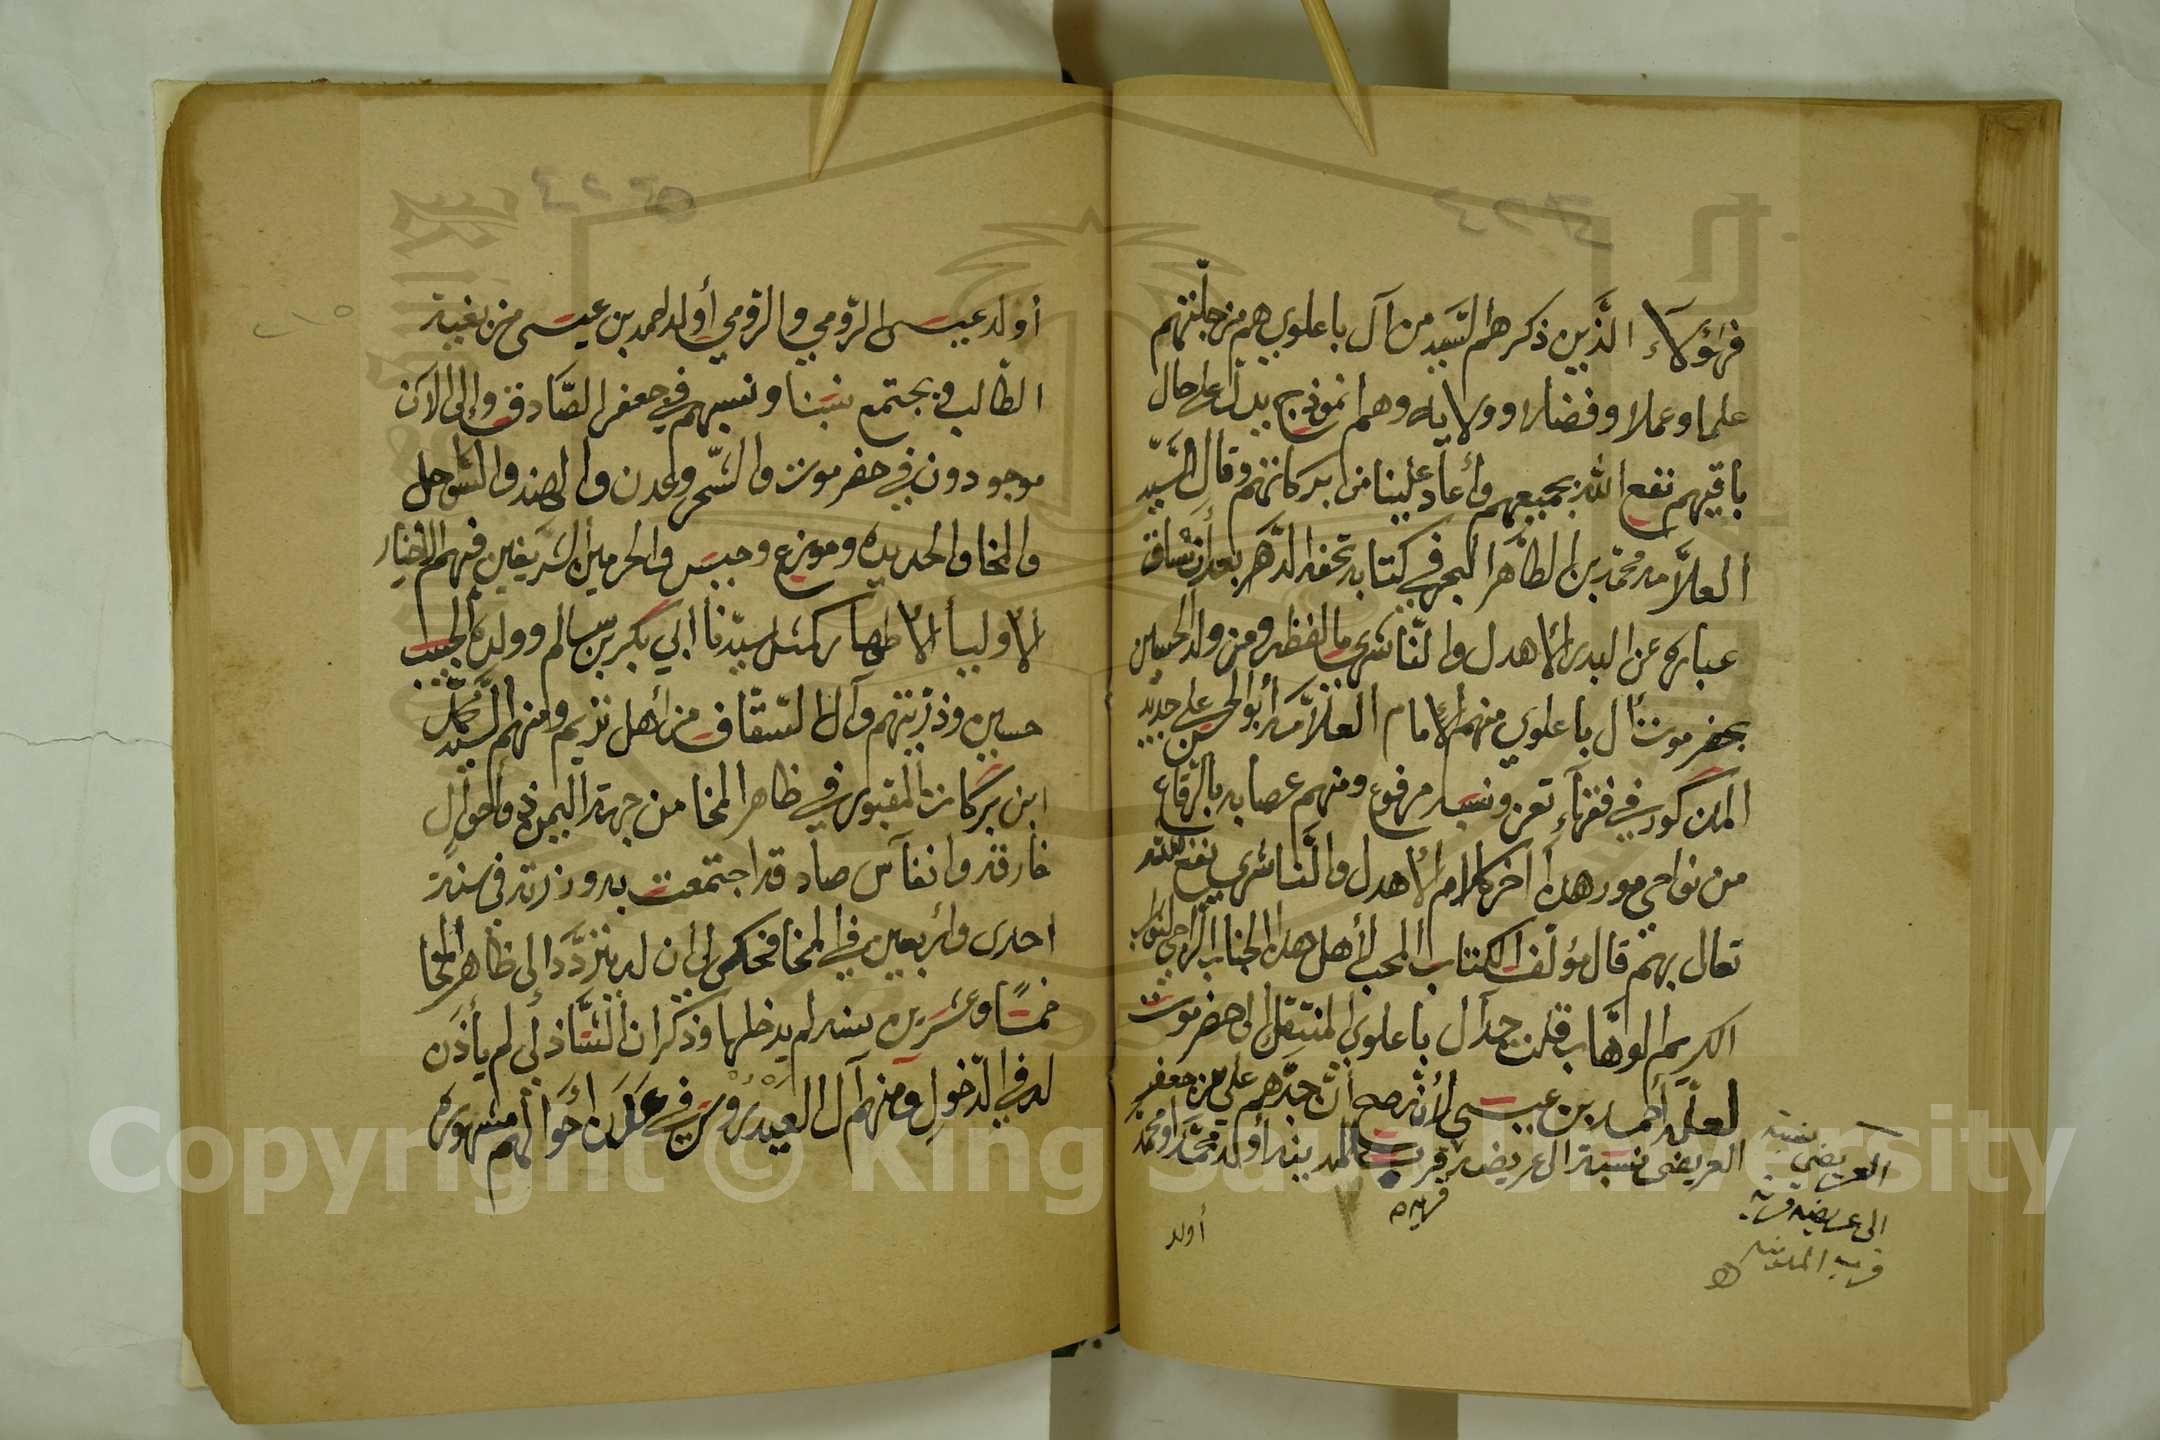 فهؤلاء الذين ذكرهم السيد من آل باعلوي هم من جلتهم
علما وعملا وفضلا وولاية وهم أنموذج يدل على حال
باقيهم نفع الله بجميعهم وأعاد علينا من بركاتهم وقال السيد
العلامة محمد بن الطاهر البحر في كتابه تحفة الدهر بعد أن ساق
عبارة عن البدر الأهدل والناشري ما لفظه ومن ولد الحسين
بحضرموت آل باعلوي منهم الإمام العلامة أبو الحسن علي جديد
المذكور في فقهاء تعز ونسبه مرفوع ومنهم عصابه بالرقاع
من نواحي مور هذا آخر كلام الأهدل والناشري نفع الله
تعالى بهم قال مؤلف الكتاب المحب لأهل هذا الجناب الراجي لثواب
الكريم الوهاب قلت جد آل باعلوي المنتقل إلى حضرموت
لعله أحمد بن عيسى لأنه صح أن جدهم علي بن جعفر
العريضي نسبة إلى عريضه قرب المدينة أولد محمدا ومحمد
قرية ه
العريضي نسبة
إلى عريضه قرية
قرب المدينة
أولد
أولد عيسى الرومي والرومي أولد أحمد بن عيسى من بغية
الطالب ويجتمع نسبنا ونسبهم في جعفر الصادق وإلى الآن
موجودون في حضرموت والشحر وعدن والهند والسواحل
والمخا والحديده وموزع وحيس والحرمين الشريفين فمنهم الأخيار
الأوليأ الأطهار كمثل سيدنا أبي بكر بن سالم وولده الحبيب
حسين وذريتهم وآل السقاف من أهل تريم ومنهم السيد
ابن بركات المقبور في ظاهر المخا من جهة اليمن ذو أحوال
خارقة وانفاس صادقة اجتمعت به وزرته في سنة
احدى وأربعين في المخا فحكى لي ان له يتردد إلى ظاهر المخا
خمسا وعشرين سنه لم يدخلها وذكر ان الشاذلي لم يأذن
له في الدخول ومنهم آل العيدروس في عدن أحوالهم مشهورة
٢١٥
Copyright © King Saud University